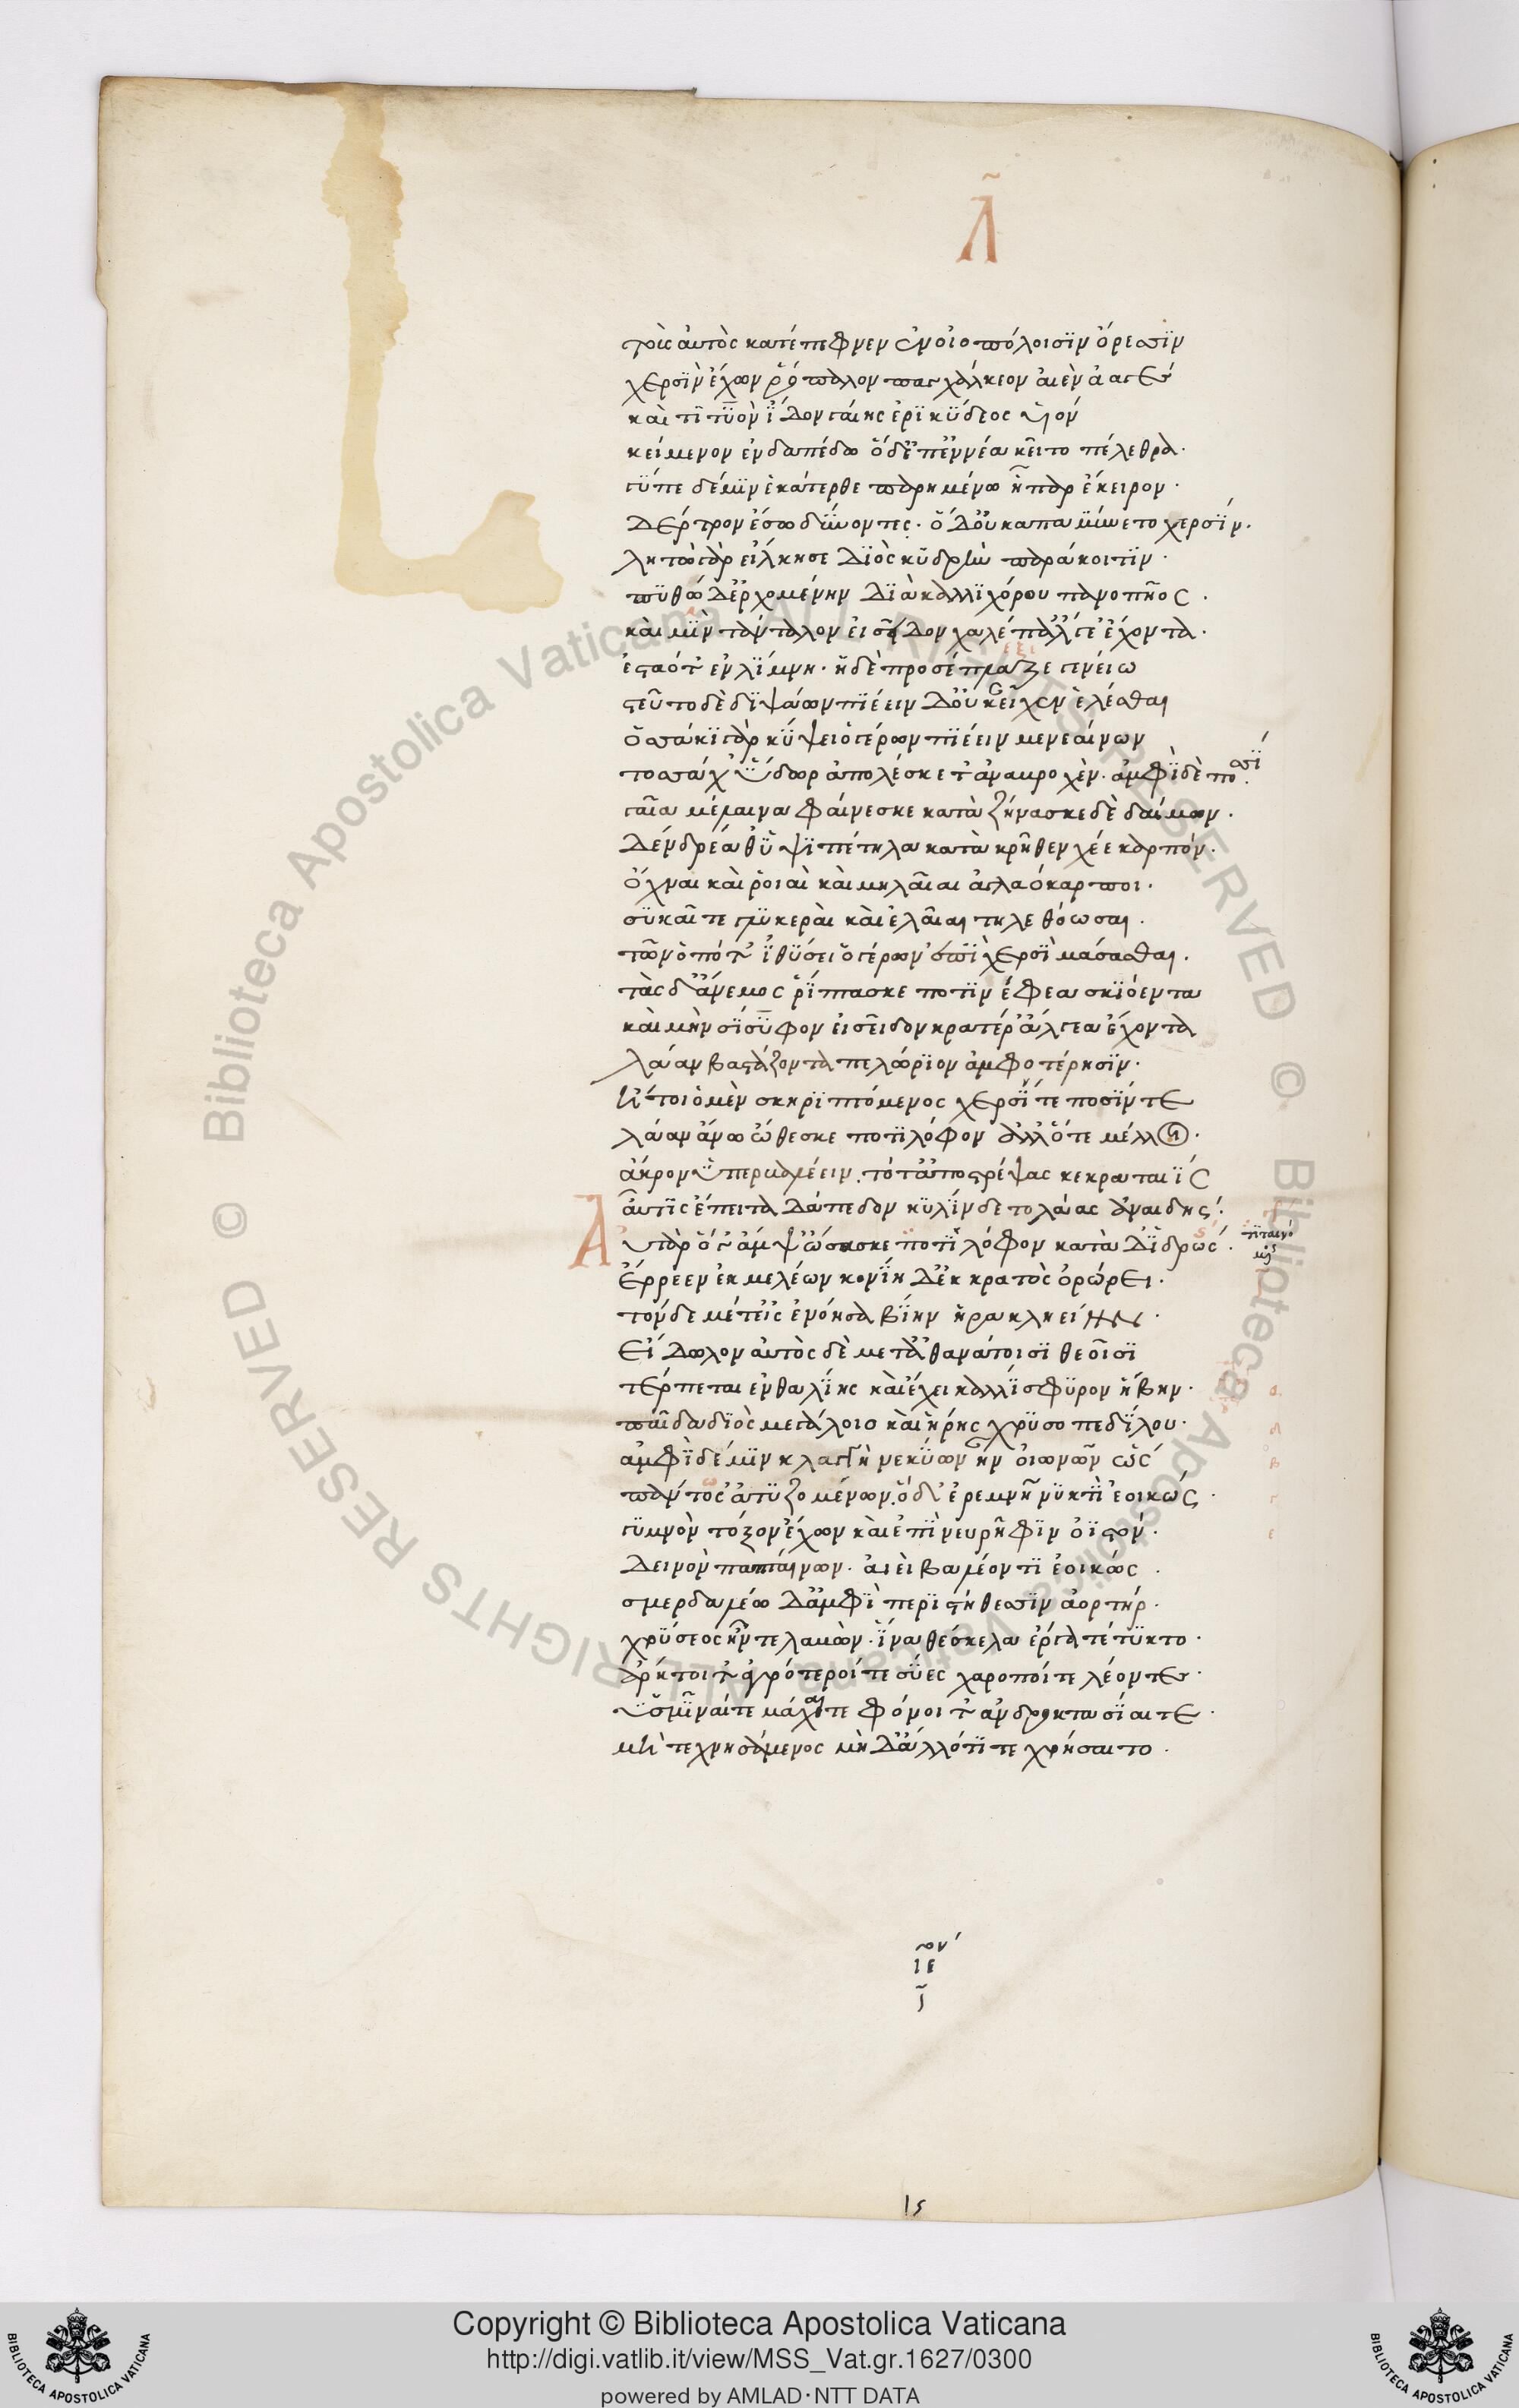 Λ
τοὺς αὐτὸς κατέπεφνεν ἐν οἰοπόλοισϊν ὄρεσσϊν
χερσϊν ἔχων ῥόπαλον παγχάλκεον αἰὲν ἀαγές
καὶ τιτϋὸν ἴδον γαίης ἐρϊκϋδέος υἱόν
κείμενον ἐν δαπέδω ὁ δ' ἐπ' ἐννέα κεῖτο πέλεθρα·
γῦπε δέ μϊν ἑκάτερθε παρημένω ἧπαρ ἔκειρον·
δέρτρον ἔσω δύνοντες· ὁ δ' οὐκ ἀπαμύνετο χερσϊν·
λητὼ γὰρ εἵλκησε Διὸς κυδρὴν παράκοιτϊν·
πυθώδ' ἐρχομένην διὰ καλλϊχόρου πανοπῆος·
καὶ μὴν τάνταλον εἰσεῖδον χαλέπ' ἄλγε' ἔχοντα·
ἑσταότ' ἐν λίμνη· ἡ δὲ προσέπλαζε γενείω
στεῦτο δὲ διψάων πϊέειν δ' οὐκ εἶχεν ἑλέσθαι
ὁσσάκϊ γὰρ κύψει' ὁ γέρων πϊέειν μενεαίνων
τοσσάχ' ὕδωρ ἀπολέσκετ' ἀναβροχὲν· ἀμφὶ δὲ ποσσὶ
γαῖα μέλαινα φάνεσκε καταζήνασκε δὲ δαίμων·
δένδρεα θ' ὑψϊπέτηλα κατὰ κρῆθεν χέε καρπόν·
ὄχναι καὶ ῥοιαὶ καὶ μηλέαι ἀγλαόκαρποι·
συκαῖ τε γλυκεραὶ καὶ ἐλαῖαι τηλεθόωσαι·
τῶν ὁπότ' ἰθύσει' ὁ γέρων ἐπὶ χερσὶ μάσασθαι·
τὰς δ' ἄνεμος ῥίπτασκε ποτὶ νέφεα σκιόεντα
καὶ μὴν σίσυφον εἰσεῖδον κρατέρ' ἄλγεα ἔχοντα
λᾶαν βαστάζοντα πελώριον ἀμφοτέρησϊν·
ἤτοι ὁ μὲν σκηρϊπτόμενος χερσίν τε ποσίν τε
λᾶαν ἄνω ὤθεσκε ποτὶ λόφον ἀλλ' ὅτε μέλλοι·
ἄκρον ὑπερβαλέειν· τότ' ἀποστρέψας κε κραταιΐς
αὖτϊς ἔπειτα δάπεδον κϋλίνδετο λᾶας ἀναιδής·
Αὐτὰρ ὅ γ' ἂψ ὤσασκε ποτὶ λόφον κατὰ δ' ἱδρώς·
τϊταινόμενος
ἔρρεεν ἐκ μελέων κονίη δ' ἐκ κρατὸς ὀρώρει·
τὸν δὲ μέτ' εἰσενόησα βίην ἡρακληείην·
εἴδωλον αὐτὸς δὲ μετ' ἀθανάτοισϊ θεοῖσϊ
τέρπεται ἐν θαλίης καὶ ἔχει καλλίσφυρον ἥβην·
παῖδα διὸς μεγάλοιο καὶ ἥρης χρυσοπεδίλου·
ἀμφὶ δέ μϊν κλαγγὴ νεκύων ἦν οἰωνῶν ὥς
πάντοσ' ἀτυζομένων· ὁ δ' ἐρεμνῆ νυκτὶ ἐοικώς·
γυμνὸν τόξον ἔχων καὶ ἐπὶ νευρῆφϊν ὀϊστόν·
δεινὸν παπταίνων· αἰεὶ βαλέοντϊ ἐοικώς·
σμερδαλέω δ' ἀμφὶ περὶ στήθεσσϊν ἀορτήρ·
χρύσεος ἦν τελαμών· ἵνα θέσκελα ἔργα τέτυκτο·
ἄρκτοι τ' ἀγρότεροί τε σύες χαροποί τε λέοντες·
ὑσμῖναί τε μάχαι τε φόνοι τ' ἀνδροκτασίαι τε·
μὴ τεχνησάμενος μὴ δ' ἄλλό τϊ τε χρήσαιτο·
ιε
ις
Copyright © Biblioteca Apostolica Vaticana
http://digi.vatlib.it/view/MSS_Vat.gr.1627/0300
powered by AMLAD·NTT DATA